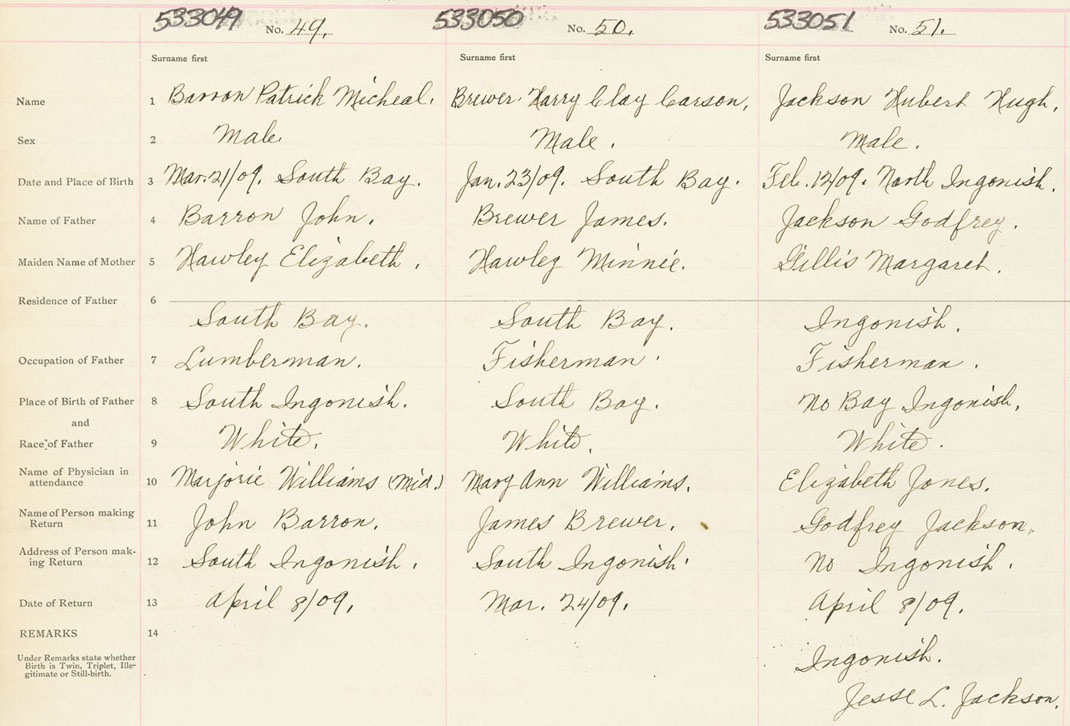 533049 No. 49. 533050 No. 50. 533051 No. 51.
Surname first Surname first Surname first
Name 1 Barron Patrick Micheal. Brewer Harry Clay Carson, Jackson Hubert Hugh,
Sex 2 Male. Male. Male.
Date and Place of Birth 3 Mar. 21/09. South Bay. Jan. 23/09. South Bay. Feb. 12/09. North Ingonish.
Name of Father 4 Barron John. Brewer James. Jackson Godfrey.
Maiden Name of Mother 5 Hawley Elizabeth. Hawley Minnie. Gillis Margaret.
Residence of Father 6
South Bay. South Bay. Ingonish.
Occupation of Father 7 Lumberman. Fisherman. Fisherman.
Place of Birth of Father 8 South Ingonish. South Bay. No Bay Ingonish.
and
Race of Father 9 White. White. White.
Name of Physician in
attendance 10 Marjorie Williams (Mid.) Mary Ann Williams. Elizabeth Jones.
Name of Person making
Return 11 John Barron. James Brewer. Godfrey Jackson.
Address of Person mak-
ing Return 12 South Ingonish. South Ingonish. No Ingonish.
Date of Return 13 April 8/09. Mar. 24/09. April 8/09.
REMARKS 14
Under Remarks state whether
Birth is Twin, Triplet, Ille-
gitimate or Still-birth.
Ingonish.
Jesse L. Jackson.